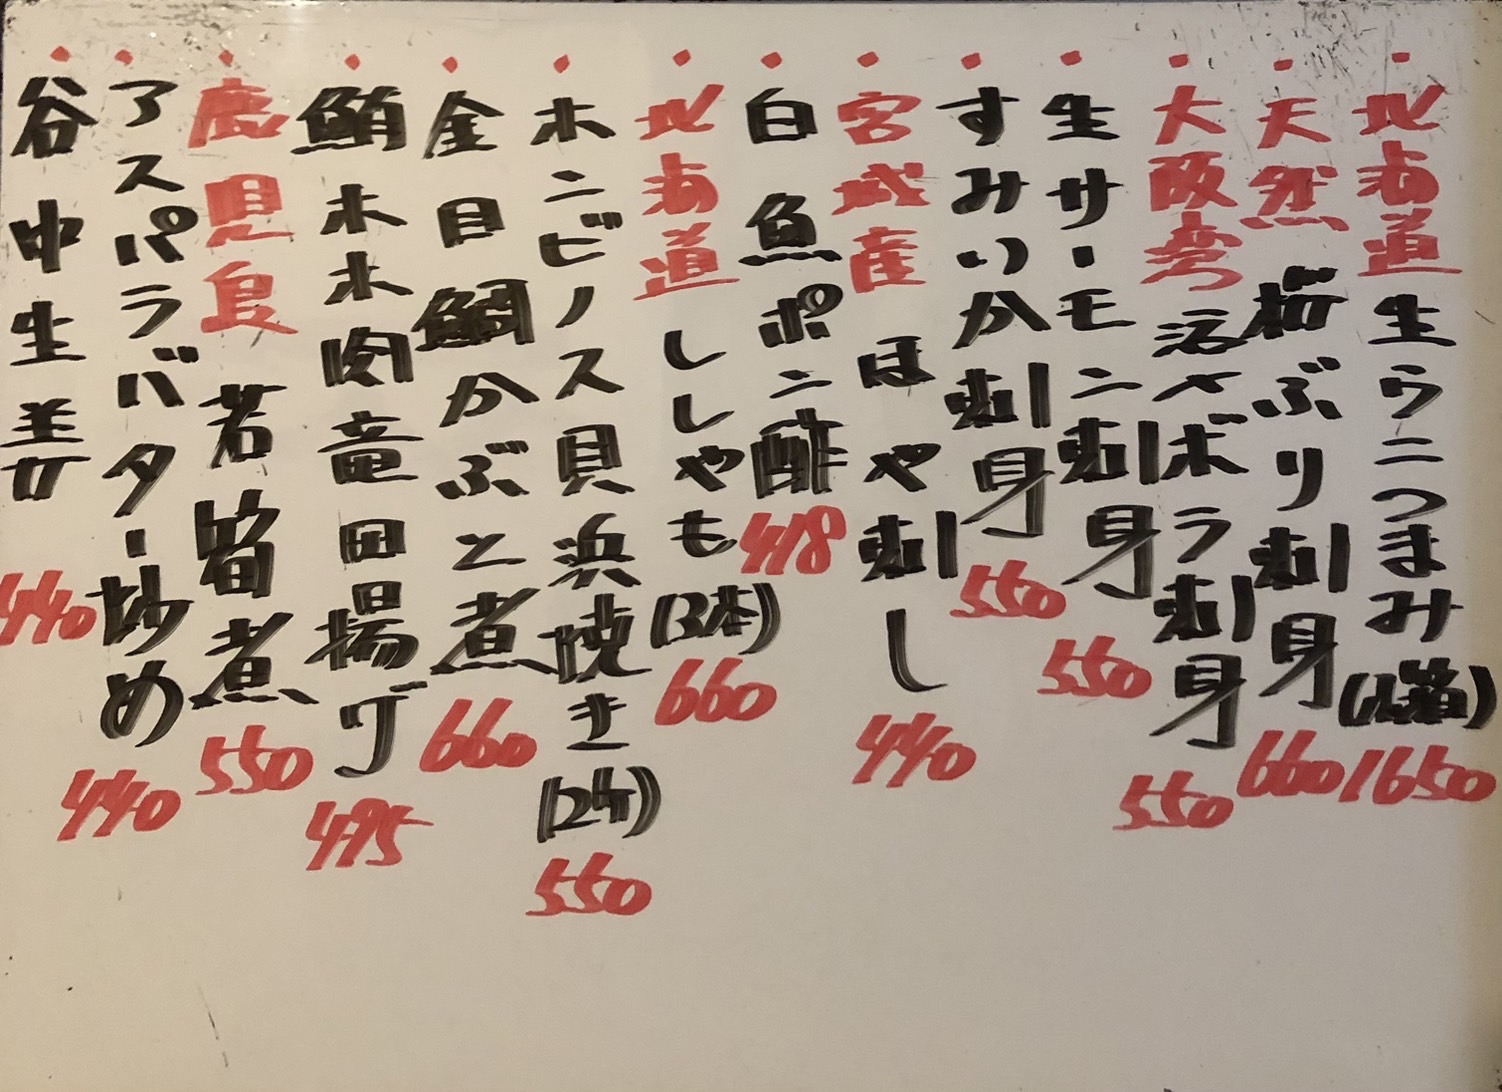 ・北海道 生ウニつまみ(小箱) 1650
・天然 桜ぶり刺身 660
・大阪湾 活〆ボラ刺身 550
・生サーモン刺身 550
・すみいか刺身 550
・宮城産 ほや刺し 440
・白魚ポン酢 418
・北海道 ししゃも(3本) 660
・ホンビノス貝浜焼き(2ケ) 550
・金目鯛かぶと煮 660
・鮪ホホ肉竜田揚げ 495
・鹿児島 若筍煮 550
・アスパラバター炒め 440
・谷中生姜 440